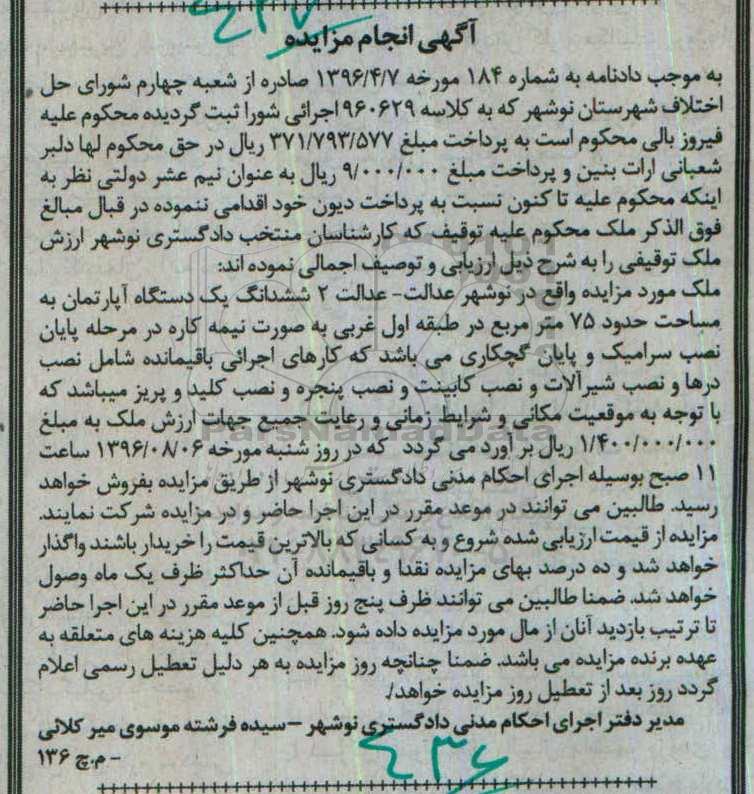 آگهی انجام مزایده
به موجب دادنامه به شماره ۱۸۴ مورخه ۱۳۹۶/۴/۷ صادره از شعبه چهارم شورای حل
اختلاف شهرستان نوشهر که به کلاسه ۹۶۰۶۲۹ اجرائی شورا ثبت گردیده محکوم علیه
فیروز بالی محکوم است به پرداخت مبلغ ۳۷۱/۷۹۳/۵۷۷ ریال در حق محکوم لها دلبر
شعبانی ارات بنین و پرداخت مبلغ ۹/۰۰۰/۰۰۰ ریال به عنوان نیم عشر دولتی نظر به
اینکه محکوم علیه تا کنون نسبت به پرداخت دیون خود اقدامی ننموده در قبال مبالغ
فوق الذکر ملک محکوم علیه توقیف که کارشناسان منتخب دادگستری نوشهر ارزش
ملک توقیفی را به شرح ذیل ارزیابی و توصیف اجمالی نموده اند:
ملک مورد مزایده واقع در نوشهر عدالت- عدالت ۲ ششدانگ یک دستگاه آپارتمان به
مساحت حدود ۷۵ متر مربع در طبقه اول غربی به صورت نیمه کاره در مرحله پایان
نصب سرامیک و پایان گچکاری می باشد که کارهای اجرائی باقیمانده شامل نصب
درها و نصب شیرآلات و نصب کابینت و نصب پنجره و نصب کلید و پریز میباشد که
با توجه به موقعیت مکانی و شرایط زمانی و رعایت جمیع جهات ارزش ملک به مبلغ
۱/۴۰۰/۰۰۰/۰۰۰ ریال بر آورد می گردد که در روز شنبه مورخه ۱۳۹۶/۰۸/۰۶ ساعت
۱۱ صبح بوسیله اجرای احکام مدنی دادگستری نوشهر از طریق مزایده بفروش خواهد
رسید. طالبین می توانند در موعد مقرر در این اجرا حاضر و در مزایده شرکت نمایند.
مزایده از قیمت ارزیابی شده شروع و به کسانی که بالاترین قیمت را خریدار باشند واگذار
خواهد شد و ده درصد بهای مزایده نقدا و باقیمانده آن حداکثر ظرف یک ماه وصول
خواهد شد. ضمنا طالبین می توانند ظرف پنج روز قبل از موعد مقرر در این اجرا حاضر
تا ترتیب بازدید آنان از مال مورد مزایده داده شود. همچنین کلیه هزینه های متعلقه به
عهده برنده مزایده می باشد. ضمنا چنانچه روز مزایده به هر دلیل تعطیل رسمی اعلام
گردد روز بعد از تعطیل روز مزایده خواهد/.
مدیر دفتر اجرای احکام مدنی دادگستری نوشهر –سیده فرشته موسوی میر کلائی
- م.چ ۱۳۶
ParsNamadData